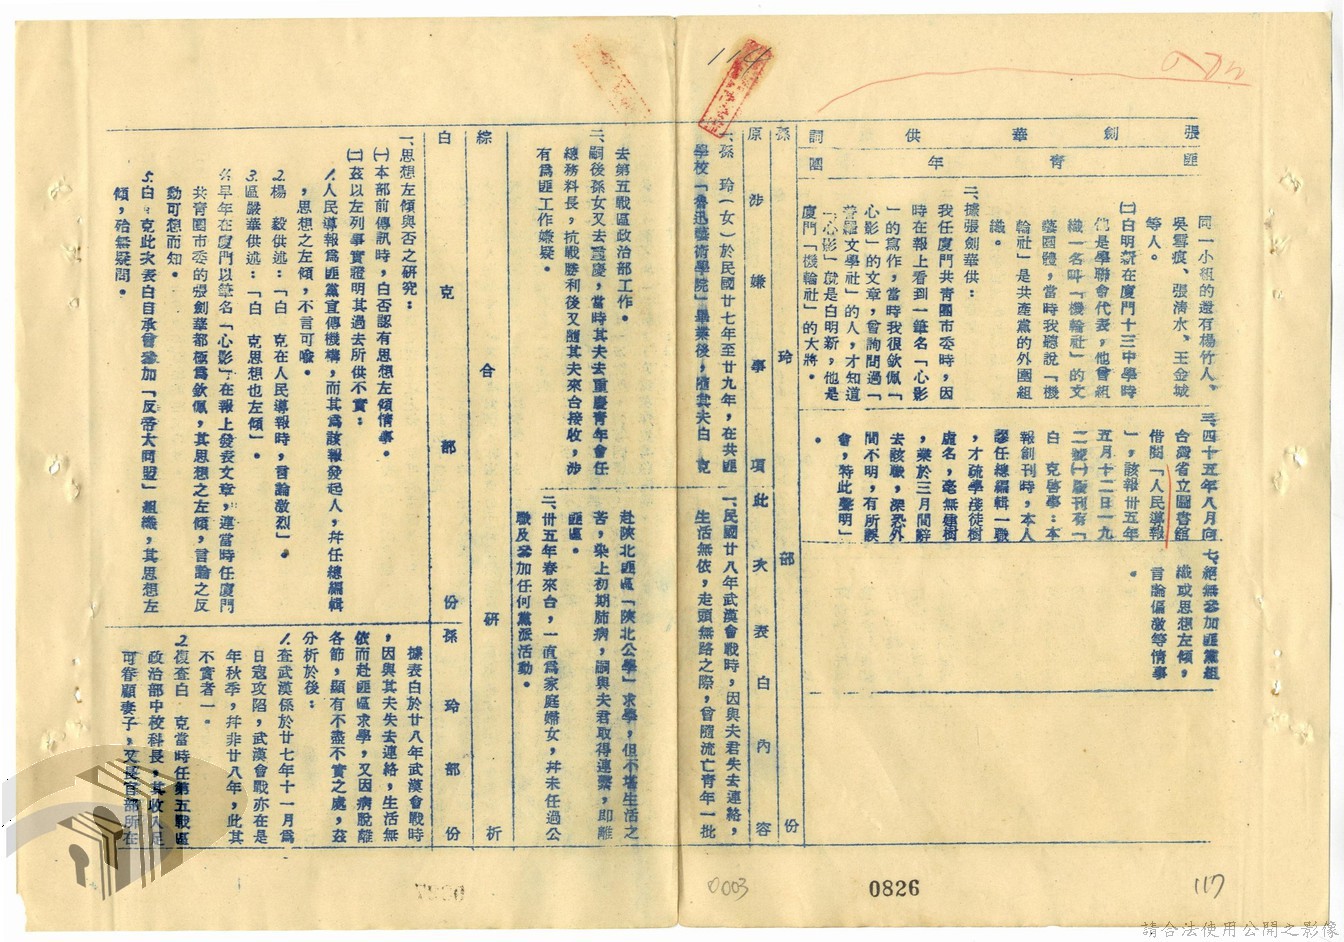 114
張劍華供詞
匪青年團
同一小組的還有楊竹人、
吳雪痕、張濤水、王金城
等人。
㈡白明新在廈門十三中學時
他是學聯會代表,他曾組
織一名叫「機輪社」的文
藝團體,當時我聽說「機
輪社」是共產黨的外圍組
織。
二、據張劍華供:
我任廈門共青團市委時,因
時在報上看到一筆名「心影
」的寫作,當時我很欽佩「
心影」的文章,曾詢問過「
普羅文學社」的人,才知道
「心影」就是白明新,他是
廈門「機輪社」的大將。
三、四十五年八月向
台灣省立圖書館
借閱「人民導報
」,該報卅五年
五月十二日一九
二號㈠版刊有「
白 克啓事:本
報創刊時,本人
謬任總編輯一職
,才疏學淺徒樹
虛名,毫無建樹
,業於三月間辭
去該職,深恐外
間不明,有所誤
會,特此聲明」
。
七、絕無參加匪黨組
織或思想左傾,
言論偏激等情事
。
孫玲部份
原涉嫌事項
此次表白內容
一、孫 玲(女)於民國廿七年至廿九年,在共匪
學校「魯迅藝術學院」畢業後,隨其夫白 克
去第五戰區政治部工作。
二、嗣後孫女又去重慶,當時其夫去重慶青年會任
總務科長,抗戰勝利後又隨其夫來台接收,涉
有爲匪工作嫌疑。
一、民國廿八年武漢會戰時,因與夫君失去連絡,
生活無依,走頭無路之際,曾隨流亡青年一批
赴陝北匪區「陝北公學」求學,但不堪生活之
苦,染上初期肺病,嗣與夫君取得連繫,即離
匪區。
二、卅五年春來台,一直爲家庭婦女,幷未任過公
職及參加任何黨派活動。
綜合研析
白克部份
一、思想左傾與否之研究:
㈠本部前傳訊時,白否認有思想左傾情事。
㈡茲以左列事實證明其過去所供不實:
1.人民導報爲匪黨宣傳機構,而其爲該報發起人,幷任總編輯
,思想之左傾,不言可喻。
2.楊 毅供述:「白 克在人民導報時,言論激烈」。
3.區嚴華供述:「白 克思想也左傾」。
4.早年在廈門以筆名「心影」在報上發表文章,連當時任廈門
共青團市委的張劍華都極爲欽佩,其思想之左傾,言論之反
動可想而知。
5.白 克此次表白自承會參加「反帝大同盟」組織,其思想左
傾,殆無疑問。
孫玲部份
據表白於廿八年武漢會戰時
,因與其夫失去連絡,生活無
依而赴匪區求學,又因病脫離
各節,顯有不盡不實之處,茲
分析於後:
1.查武漢係於廿七年十一月爲
日寇攻陷,武漢會戰亦在是
年秋季,幷非廿八年,此其
不實者一。
2.復查白 克當時任第五戰區
政治部中校科長,其收入足
可眷顧妻子,又長官部所在
0003
0826
117
請合法使用公開之影像